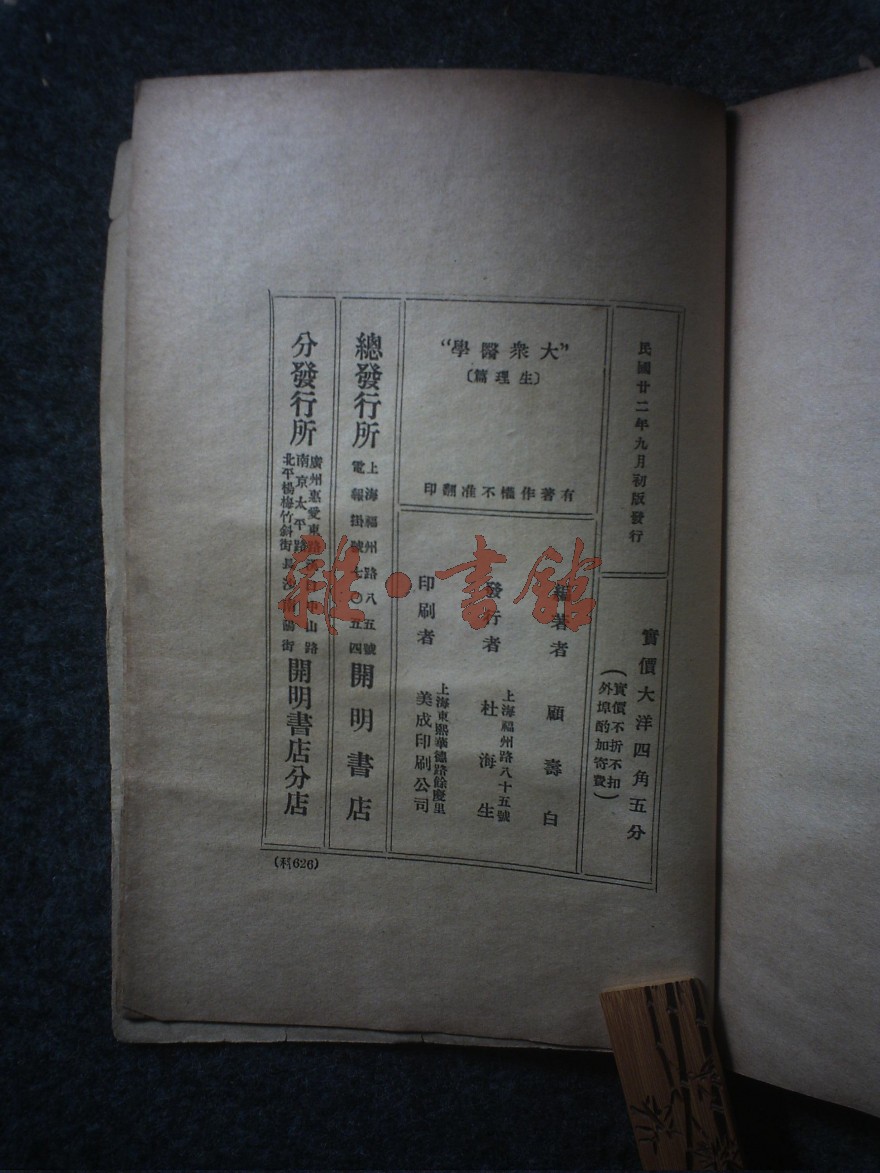 民國廿二年九月初版發行
實價大洋四角五分
(實價不折不扣
外埠酌加寄費)
“大衆醫學”
〔生理篇〕
有著作權不准翻印
編著者 顧壽白
發行者 上海福州路八十五號
杜海生
印刷者 上海東熙華德路餘慶里
美成印刷公司
總發行所 上海福州路八五號
電報掛號七〇五四
開明書店
分發行所 廣州惠愛東路 漢口中山路
南京太平路
北平楊梅竹斜街 長沙南陽街
開明書店分店
(科626)
雜·書館